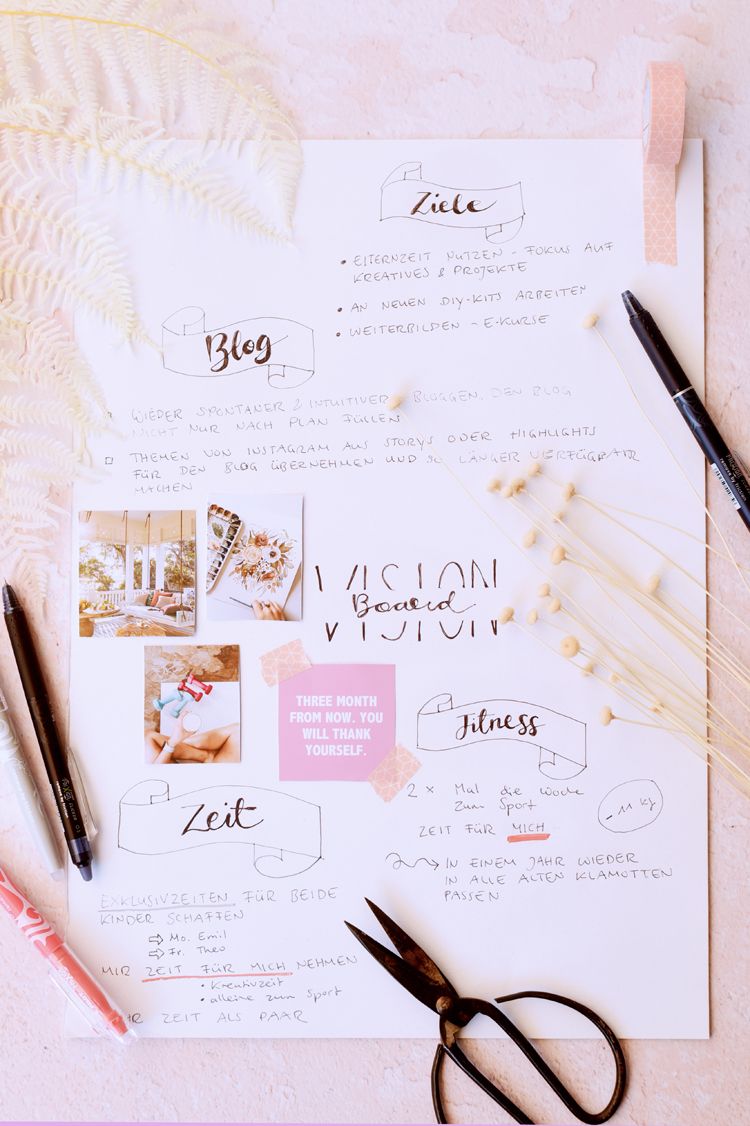 Ziele
• ELTERNZEIT NUTZEN - FOKUS AUF
KREATIVES & PROJEKTE
• AN NEUEN DIY-KITS ARBEITEN
• WEITERBILDEN - E-KURSE
Blog
WIEDER SPONTANER & INTUITIVER BLOGGEN, DEN BLOG
NICHT NUR NACH PLAN FÜLLEN
THEMEN VON INSTAGRAM AUS STORYS ODER HIGHLIGHTS
FÜR DEN BLOG ÜBERNEHMEN UND SO LÄNGER VERFÜGBAR
MACHEN
VISION
Board
THREE MONTH
FROM NOW. YOU
WILL THANK
YOURSELF.
Fitness
2 x Mal die Woche
zum Sport
ZEIT FÜR MICH
- 11 kg
IN EINEM JAHR WIEDER
IN ALLE ALTEN KLAMOTTEN
PASSEN
Zeit
EXKLUSIVZEITEN FÜR BEIDE
KINDER SCHAFFEN
⇨ Mo. Emil
⇨ Fr. Theo
MIR ZEIT FÜR MICH NEHMEN
• Kreativzeit
• alleine zum Sport
HR ZEIT ALS PAAR